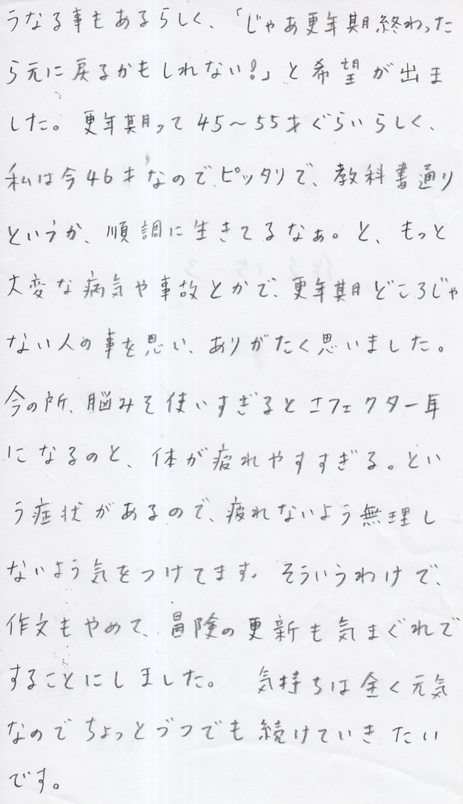 うなる事もあるらしく、「じゃあ更年期終わった
ら元に戻るかもしれない!」と希望が出ま
した。更年期って45〜55才ぐらいらしく、
私は今46才なので、ピッタリで、教科書通り
というか、順調に生きてるなぁ。と、もっと
大変な病気や事故とかで、更年期どころじゃ
ない人の事を思い、ありがたく思いました。
今の所、脳みそ使いすぎるとエフェクター耳
になるのと、体が疲れやすすぎる。とい
う症状があるので、疲れないよう無理し
ないよう気をつけてます。そういうわけで、
作文もやめて、冒険の更新も気まぐれで
することにしました。 気持ちは全く元気
なのでちょっとづつでも続けていきたい
です。